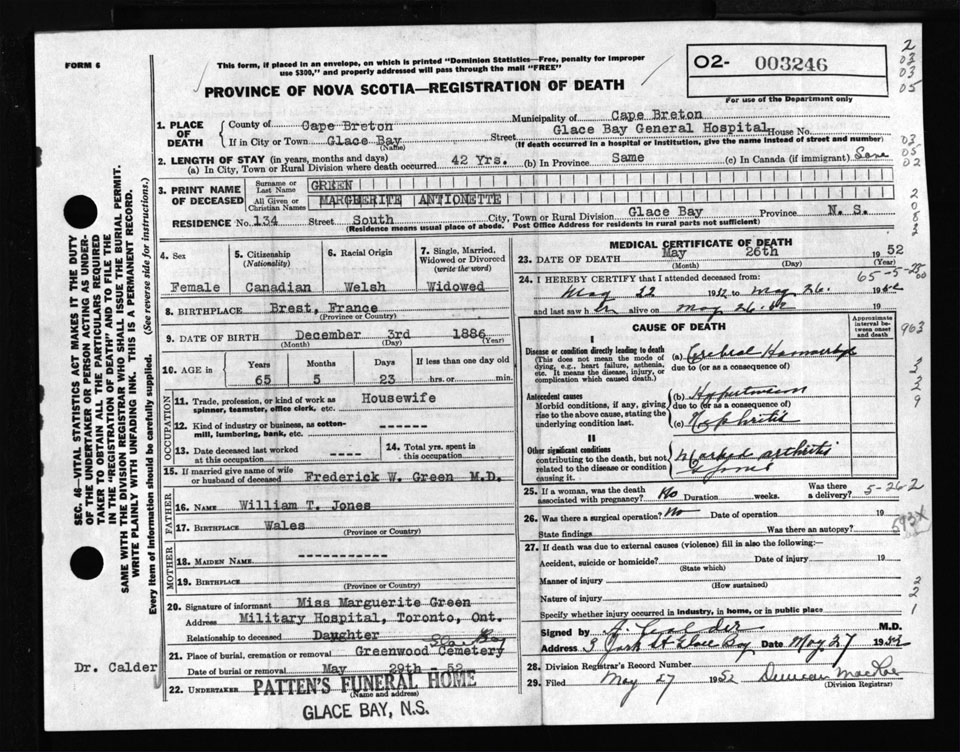 FORM 6
This form, if placed in an envelope, on which is printed "Dominion Statistics—Free, penalty for improper
use $300," and properly addressed will pass through the mail "FREE"
PROVINCE OF NOVA SCOTIA—REGISTRATION OF DEATH
O2- 003246
For use of the Department only
2
03
03
05
03
05
02
2
0
8
3
1. PLACE OF DEATH
County of Cape Breton
Municipality of Cape Breton
If in City or Town Glace Bay
(Name)
Street Glace Bay General Hospital House No.
(If death occurred in a hospital or institution, give the name instead of street and number)
2. LENGTH OF STAY (in years, months and days)
(a) In City, Town or Rural Division where death occurred 42 Yrs. (b) In Province Same (c) In Canada (if immigrant) Same
3. PRINT NAME OF DECEASED
Surname or Last Name GREEN
All Given or Christian Names MARGHERITE ANTIONETTE
RESIDENCE No. 134 Street South City, Town or Rural Division Glace Bay Province N. S.
(Residence means usual place of abode. Post Office Address for residents in rural parts not sufficient)
4. Sex
Female
5. Citizenship
(Nationality)
Canadian
6. Racial Origin
Welsh
7. Single, Married, Widowed or Divorced
(write the word)
Widowed
8. BIRTHPLACE Brest, France
(Province or Country)
9. DATE OF BIRTH December 3rd 1886
(Month) (Day) (Year)
10. AGE in
Years Months Days If less than one day old
65 5 23 hrs. or min.
OCCUPATION
11. Trade, profession, or kind of work as
spinner, teamster, office clerk, etc. Housewife
12. Kind of industry or business, as cotton-
mill, lumbering, bank, etc. ------
13. Date deceased last worked
at this occupation ------
14. Total yrs. spent in
this occupation ------
15. If married give name of wife
or husband of deceased Frederick W. Green M.D.
FATHER
16. NAME William T. Jones
17. BIRTHPLACE Wales
(Province or Country)
MOTHER
18. MAIDEN NAME ------------
19. BIRTHPLACE
(Province or Country)
20. Signature of informant Miss Marguerite Green
Address Military Hospital, Toronto, Ont.
Relationship to deceased Daughter
Glace Bay
21. Place of burial, cremation or removal Greenwood Cemetery
Date of burial or removal May 29th 52
22. UNDERTAKER PATTEN'S FUNERAL HOME
(Name and address)
GLACE BAY, N.S.
MEDICAL CERTIFICATE OF DEATH
23. DATE OF DEATH May 26th 19 52
(Month) (Day) (Year)
65-5-23
00
24. I HEREBY CERTIFY that I attended deceased from:
May 22 1952 to May 26. 1952
and last saw her alive on May 26 52 19
CAUSE OF DEATH
Approximate interval between onset and death
I
Disease or condition directly leading to death
(This does not mean the mode of
dying, e.g., heart failure, asthenia,
etc. It means the disease, injury, or
complication which caused death.)
(a) Cerebral Hemorrhage
due to (or as a consequence of)
Antecedent causes
Morbid conditions, if any, giving
rise to the above cause, stating the
underlying condition last.
(b) Hypertension
due to (or as a consequence of)
(c) Nephritis
II
Other significant conditions
contributing to the death, but not
related to the disease or condition
causing it.
Marked arthritis
963
2
9
25. If a woman, was the death
associated with pregnancy? No Duration weeks. Was there a delivery?
5-26 2
26. Was there a surgical operation? No Date of operation 19
State findings Was there an autopsy?
593X
27. If death was due to external causes (violence) fill in also the following:—
Accident, suicide or homicide? Date of injury 19
(State which)
Manner of injury
(How sustained)
Nature of injury
Specify whether injury occurred in industry, in home, or in public place
2
2
1
Signed by Calder M.D.
Address 3 York St Glace Bay Date May 27 1952
28. Division Registrar's Record Number
29. Filed May 27 1952 Duncan MacRae
(Division Registrar)
SEC. 46—VITAL STATISTICS ACT MAKES IT THE DUTY
OF THE UNDERTAKER OR PERSON ACTING AS UNDER-
TAKER TO OBTAIN ALL THE PARTICULARS REQUIRED
IN THE "REGISTRATION OF DEATH" AND TO FILE THE
SAME WITH THE DIVISION REGISTRAR WHO SHALL ISSUE THE BURIAL PERMIT.
WRITE PLAINLY WITH UNFADING INK. THIS IS A PERMANENT RECORD.
Every item of Information should be carefully supplied. (See reverse side for instructions.)
Dr. Calder